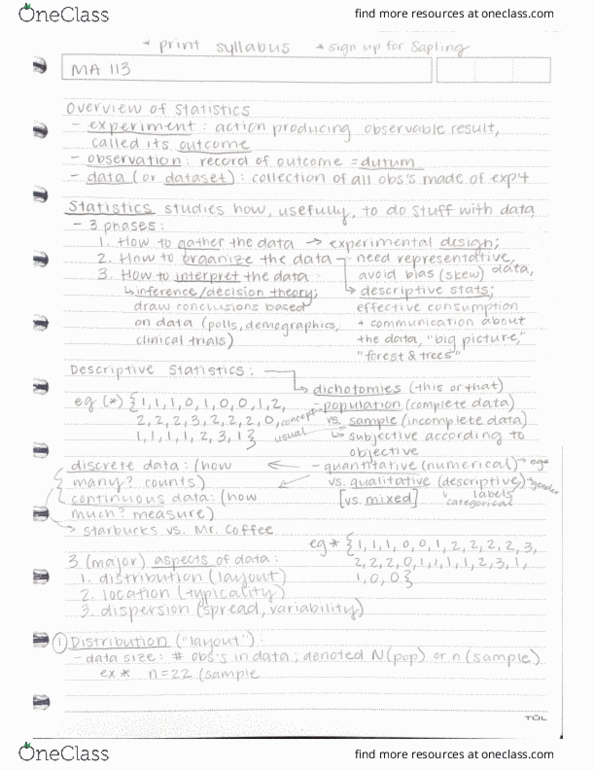 OneClass
find more resources at oneclass.com
* print syllabus * sign up for Sapling
MA 113
Overview of Statistics
- experiment : action producing observable result,
called its outcome
- observation : record of outcome = datum
- data (or dataset) : collection of all obs's made of exp't
Statistics studies how, usefully, to do stuff with data
- 3 phases :
1. How to gather the data → experimental design;
2. How to organize the data need representative,
avoid bias (skew) data,
3. How to interpret the data
↳ inference/decision theory; descriptive stats;
draw conclusions based effective consumption
on data (polls, demographics, + communication about
clinical trials) the data, "big picture,"
"forest & trees"
Descriptive Statistics :
dichotomies (this or that)
eg (*) {1,1,1,0,1,0,0,1,2, - population (complete data)
2,2,2,3,2,2,2,0, concept vs. sample (incomplete data)
1,1,1,1,2,3,1} usual ↳ subjective according to
objective
discrete data : (how ← - quantitative (numerical) → age
many? counts) vs. qualitative (descriptive) → gender
continuous data : (how [vs. mixed] labels
much? measure) categorical
→ Starbucks vs. Mr. Coffee
eg * {1,1,1,0,0,1,2,2,2,2,3,
3 (major) aspects of data : 2,2,2,0,1,1,1,1,2,3,1,
1. distribution (layout) 1,0,0}
2. location (typicality)
3. dispersion (spread, variability)
① Distribution ("layout") :
- data size : # obs's in data ; denoted N (pop) or n (sample)
ex * n=22 (sample
TŪL
OneClass
find more resources at oneclass.com